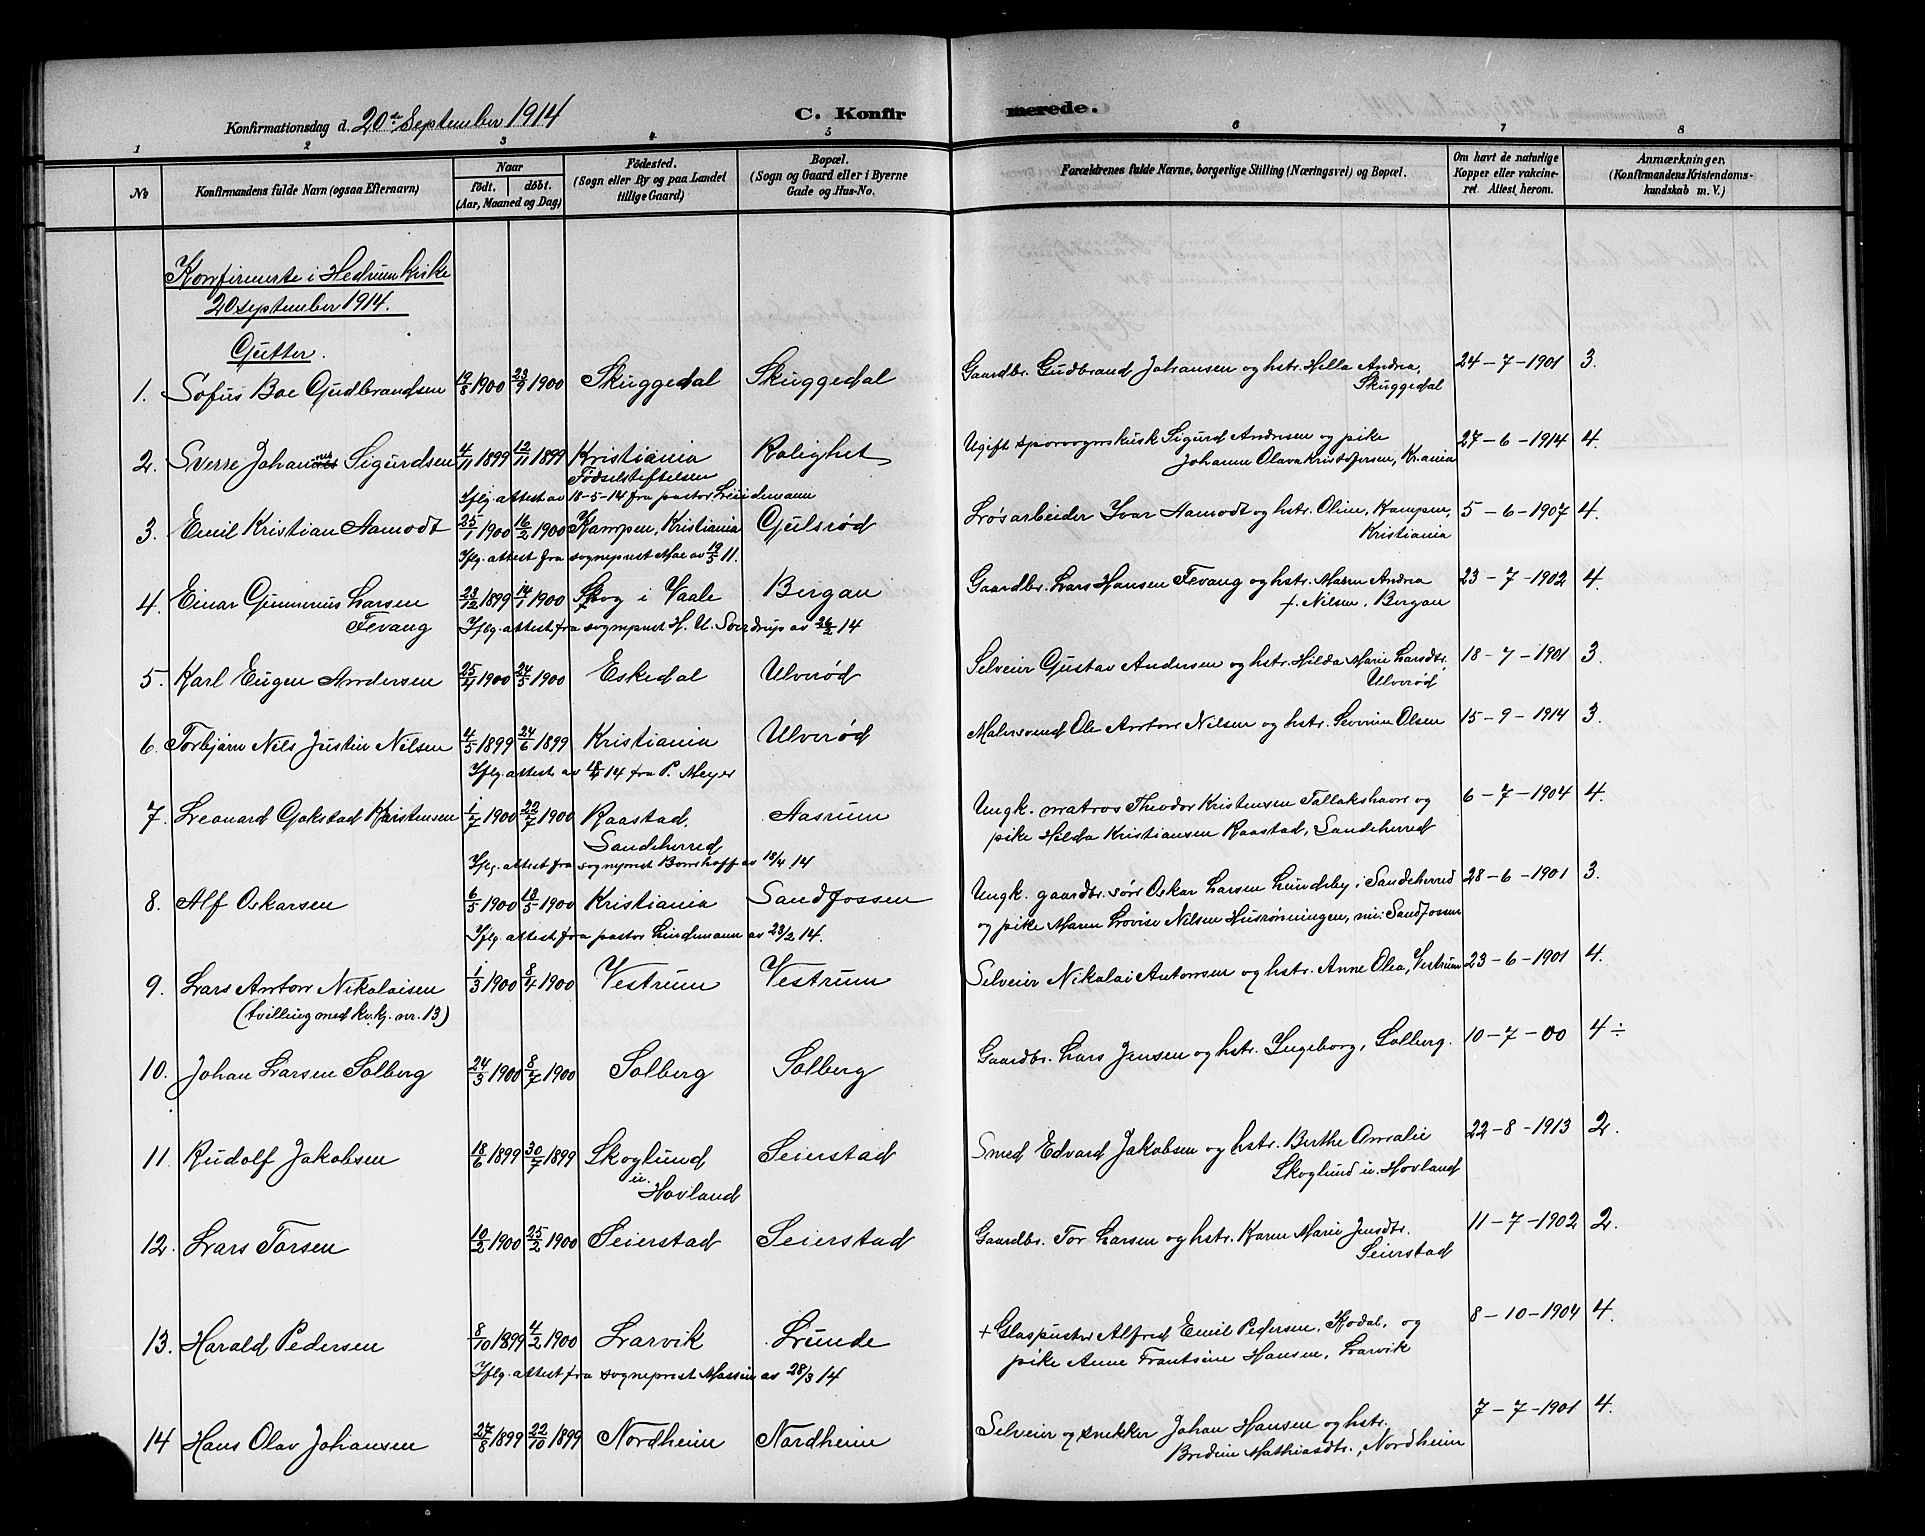 Konfirmationsdag d. 20de September 1914
C. Konfirmerede.
1 2 3 4 5 6 7 8
No
Konfirmandens fulde Navn (ogsaa Efternavn)
Naar
födt. döbt.
(Aar, Maaned og Dag)
Födested.
(Sogn eller By og paa Landet
tillige Gaard)
Bopæl.
(Sogn og Gaard eller i Byerne
Gade og Hus-No.
Forældrenes fulde Navne, borgerlige Stilling (Næringsvei) og Bopæl.
Om havt de naturlige
Kopper eller vakcine-
ret. Attest herom.
Anmærkninger.
(Konfirmandens Kristendoms-
kundskab m. V.)
Konfirmerte i Hedrum kirke
20 september 1914.
Gutter.
1. Sofus Boe Gudbrandsen 19/8 1900 23/9 1900 Skuggedal Skuggedal Gaardbr. Gudbrand Johansen og hstr. Hella Andrea, 24-7-1901 3.
Skuggedal
2. Sverre Johannes Sigurdsen 4/11 1899 12/11 1899 Kristiania Rolighet Ugift sporvognskusk Sigurd Andresen og pike 27-6-1914 4.
Fødselstiftelsen Johanne Olava Kristofersen, Kr.ania
Iflg. attest av 18-5-14 fra pastor Lindemann
3. Emil Kristian Aamodt 25/1 1900 16/2 1900 Kampen, Kristiania Gulsrød Løsarbeider Ivar Aamodt og hstr. Oline, Kampen, 5-6-1907 4.
Kristiania
Iflg. attest fra sogneprest Moe av 19/5 11.
4. Einar Gunerius Larsen 23/12 1899 14/1 1900 Skog i Vaale Bergan Gaardbr. Lars Hansen Fevang og hstr. Maren Andrea 23-7-1902 4.
Fevang f. Nilsen, Bergan
Iflg. attest fra sogneprest H. U. Sverdrup av 26/2 14
5. Karl Eugen Andersen 25/4 1900 24/5 1900 Eskedal Ulverød Selveier Gustav Andersen og hstr. Hilda Marie Larsdtr. 18-7-1901 3.
Ulverød
6. Torbjørn Nils Justin Nilsen 4/5 1899 24/6 1899 Kristiania Ulverød Malersvend Ole Anton Nilsen og hstr. Severine Olsen 15-9-1914 3.
Iflg. attest av 18/4 14 fra P. Meyer
7. Leonard Gokstad Kristensen 1/7 1900 22/7 1900 Raastad, Aasrum Ungk. matros Theodor Kristensen Tallakshavn og 6-7-1904 4.
Sandeherred pike Hilda Kristiansen Raastad, Sandeherred
Iflg. attest fra sogneprest Bomhoff av 18/4 14
8. Alf Oskarsen 6/3 1900 18/5 1900 Kristiania Sandfossen Ungk. gaardbr. søn Oskar Larsen Lundeby i Sandeherred 28-6-1901 3.
og pike Maren Lovise Nilsen Husrønningen, nu: Sandfossen
Iflg. attest fra pastor Lindemann av 23/2 14.
9. Lars Anton Nikolaisen 1/3 1900 8/4 1900 Vestrum Vestrum Selveier Nikolai Antonsen og hstr. Anne Olea, Vestrum 23-6-1901 4.
(tvilling med kv.kj. nr. 13)
10. Johan Larsen Solberg 24/3 1900 8/7 1900 Solberg Solberg Gaardbr. Lars Jensen og hstr. Ingeborg, Solberg. 10-7-00 4÷
11. Rudolf Jakobsen 18/6 1899 30/7 1899 Skoglund Seierstad Smed Edvard Jakobsen og hstr. Berthe Amalie 22-8-1913 2.
u. Hovland Skoglund u. Hovland
12. Lars Torsen 10/2 1900 25/2 1900 Seierstad Seierstad Gaardbr. Tor Larsen og hstr. Karen Marie Jensdtr. 11-7-1902 2.
Seierstad
13. Harald Pedersen 8/10 1899 4/2 1900 Larvik Lunde + Glaspuster Alfred Emil Pedersen, Kodal, og 8-10-1904 4.
pike Anne Frantsine Hansen, Larvik
Iflg. attest fra sogneprest Massin av 28/3 14
14 Hans Olav Johansen 27/8 1899 22/10 1899 Nordheim Nordheim Selveier og snekker Johan Hansen og hstr. 7-7-1901 4.
Bredine Mathiasdtr., Nordheim